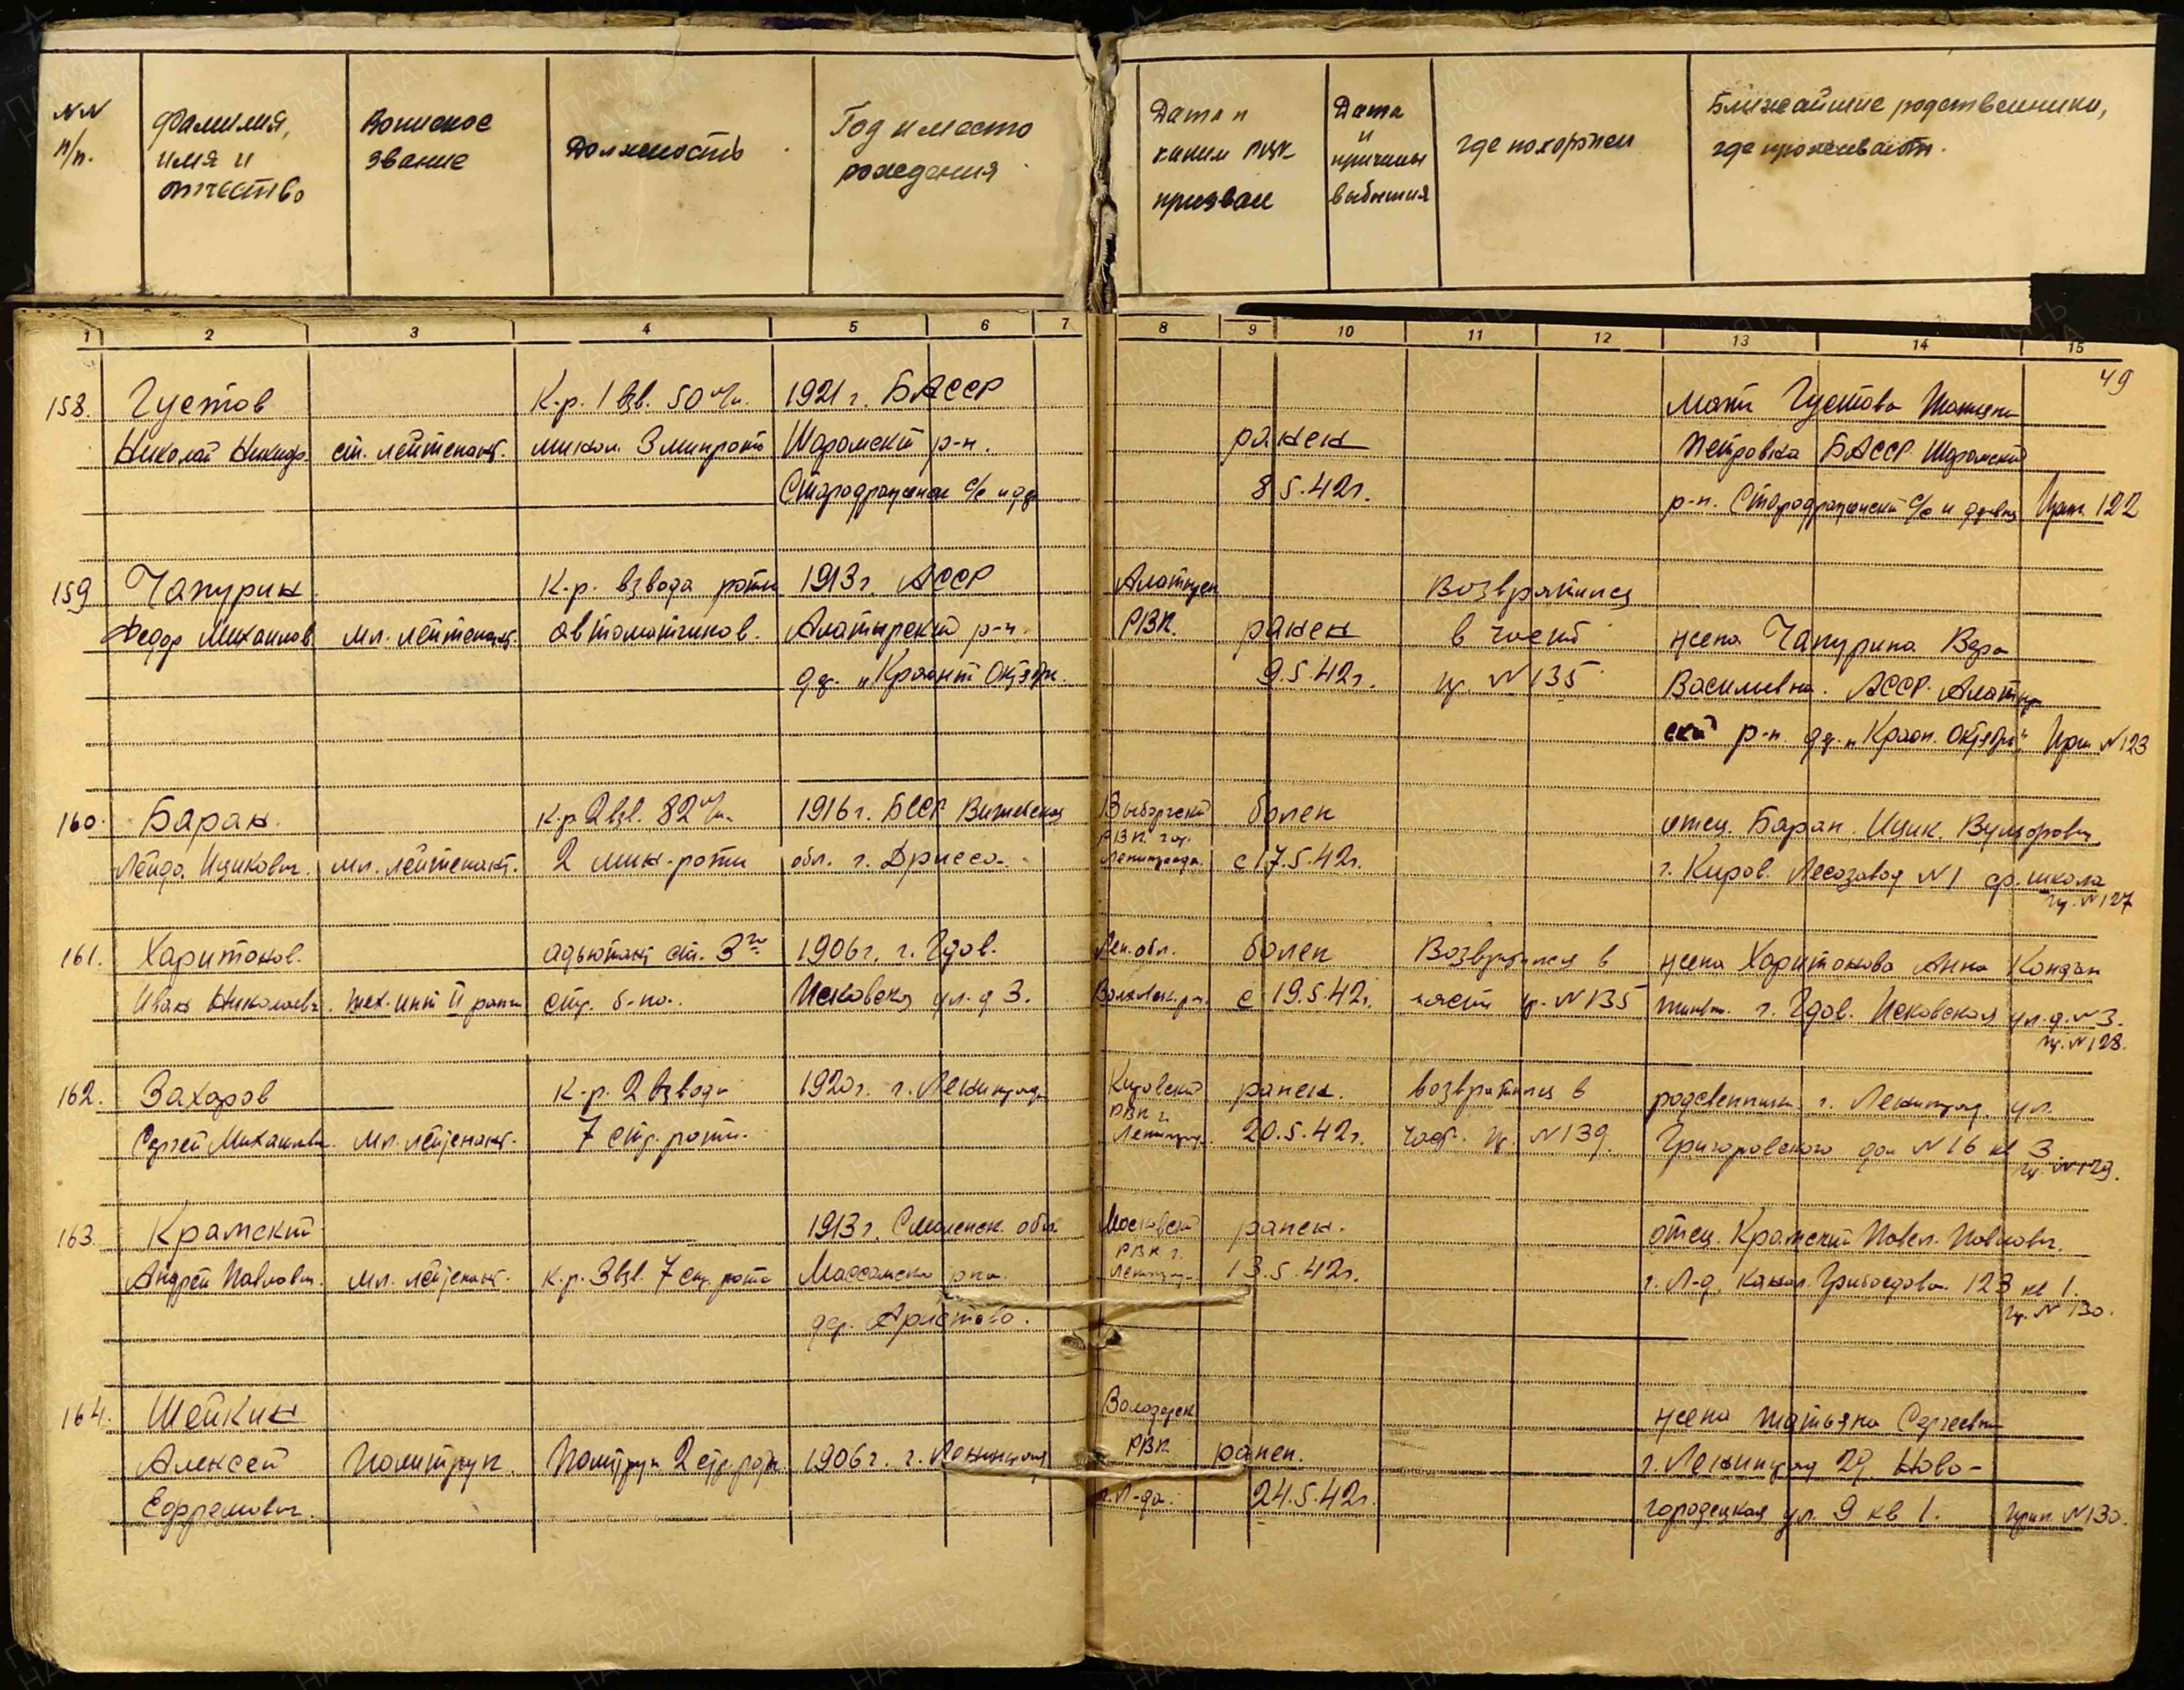 NN п/п.
Фамилия, имя и отчество
Воинское звание
Должность
Год и место рождения
Дата и каким РВК призван
Дата и причины выбытия
где похоронен
Ближайшие родственники, где проживают.
1 2 3 4 5 6 7 8 9 10 11 12 13 14 15
49
158. Густов К-р. 1 взв. 50 м/м. 1921 г. БАССР мать Густова Татьяна
Николай Никиф. ст. лейтенант. мином. 3 минроты р-н. ранен Петровна БАССР
8.5.42г. р-н. с/с и Прик. 122
159 Чапурин К-р. взвода роты 1913г. АССР Алатырск Возвратился
Федор Михайлов. мл. лейтенант. автоматчиков. Алатырский р-н. РВК. ранен в часть жена Чапурина Вера
дер. "Красный Октябр. 9.5.42г. пр. N 135 Васильевна. АССР. Алатыр
ский р-н дер. "Красн. Октябрь" Прик N 123
160. Баран. К-р 2 взв. 82 м/м. 1916 г. БССР Витебская Выборгский болен отец. Баран. Ицик.
РВК. гор.
Ицикович. мл. лейтенант. 2 мин-роты обл. г. Дрисса. Ленинграда. с 17.5.42г. г. Киров. Лесозавод N 1 ср. школа
пр. N 127
161. Харитонов. адьютант ст. 3го 1906г. г. Гдов. Лен. обл. болен Возвратился в жена Харитонова Анна
Иван Николаевич. тех. инт II ранга стр. б-на. Псковская ул. д 3. с 19.5.42г. часть пр. N 135 г. Гдов. Псковская ул. д. N 3.
пр. N 128.
162. Захаров к-р. 2 взвода 1920г. г. Ленинград Кировский ранен. возвратился в родственники г. Ленинград. ул.
РВК г.
Сергей Михайлович. мл. лейтенант. 7 стр. роты. Ленинград. 20.5.42г. часть. пр. N 139. дом N 16 кв 3.
пр. N 129.
163. Крамский 1913г. Смоленск. обл. Московский ранен. отец. Крамский Павел. Павлович.
РВК г.
Андрей Павлович. мл. лейтенант. к.р. 3 взв. 7 стр. роты р-на. Ленинград. 13.5.42г. г. Л-д, канал. Грибоедова. 123 кв 1.
дер. Аристово. пр. N 130.
164. Шейкин Володарск жена Татьяна Сергеевна
Алексей Политрук. Политрук 2 стр. роты. 1906г. г. Ленинград РВК ранен. г. Ленинград 29. Ново-
Ефремович. г. Л-да. 24.5.42г. городецкая ул. 9 кв 1. Прик N 130.
ПАМЯТЬ НАРОДА